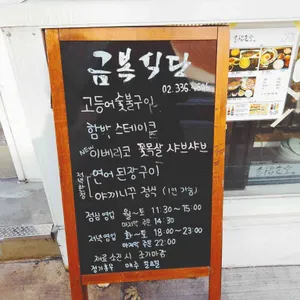 금복식당
02.336.
고등어숯불구이
함박 스테이크
NEW 이베리코 꽃목살 샤브샤브
연어 된장구이
야끼니꾸 정식 (1인 가능)
점심영업 월~토 11:30~15:00
마지막 주문 14:30
저녁영업 화~토 18:00~23:00
마지막 주문 22:00
재료 소진 시 조기마감
정기휴무 매주 일요일